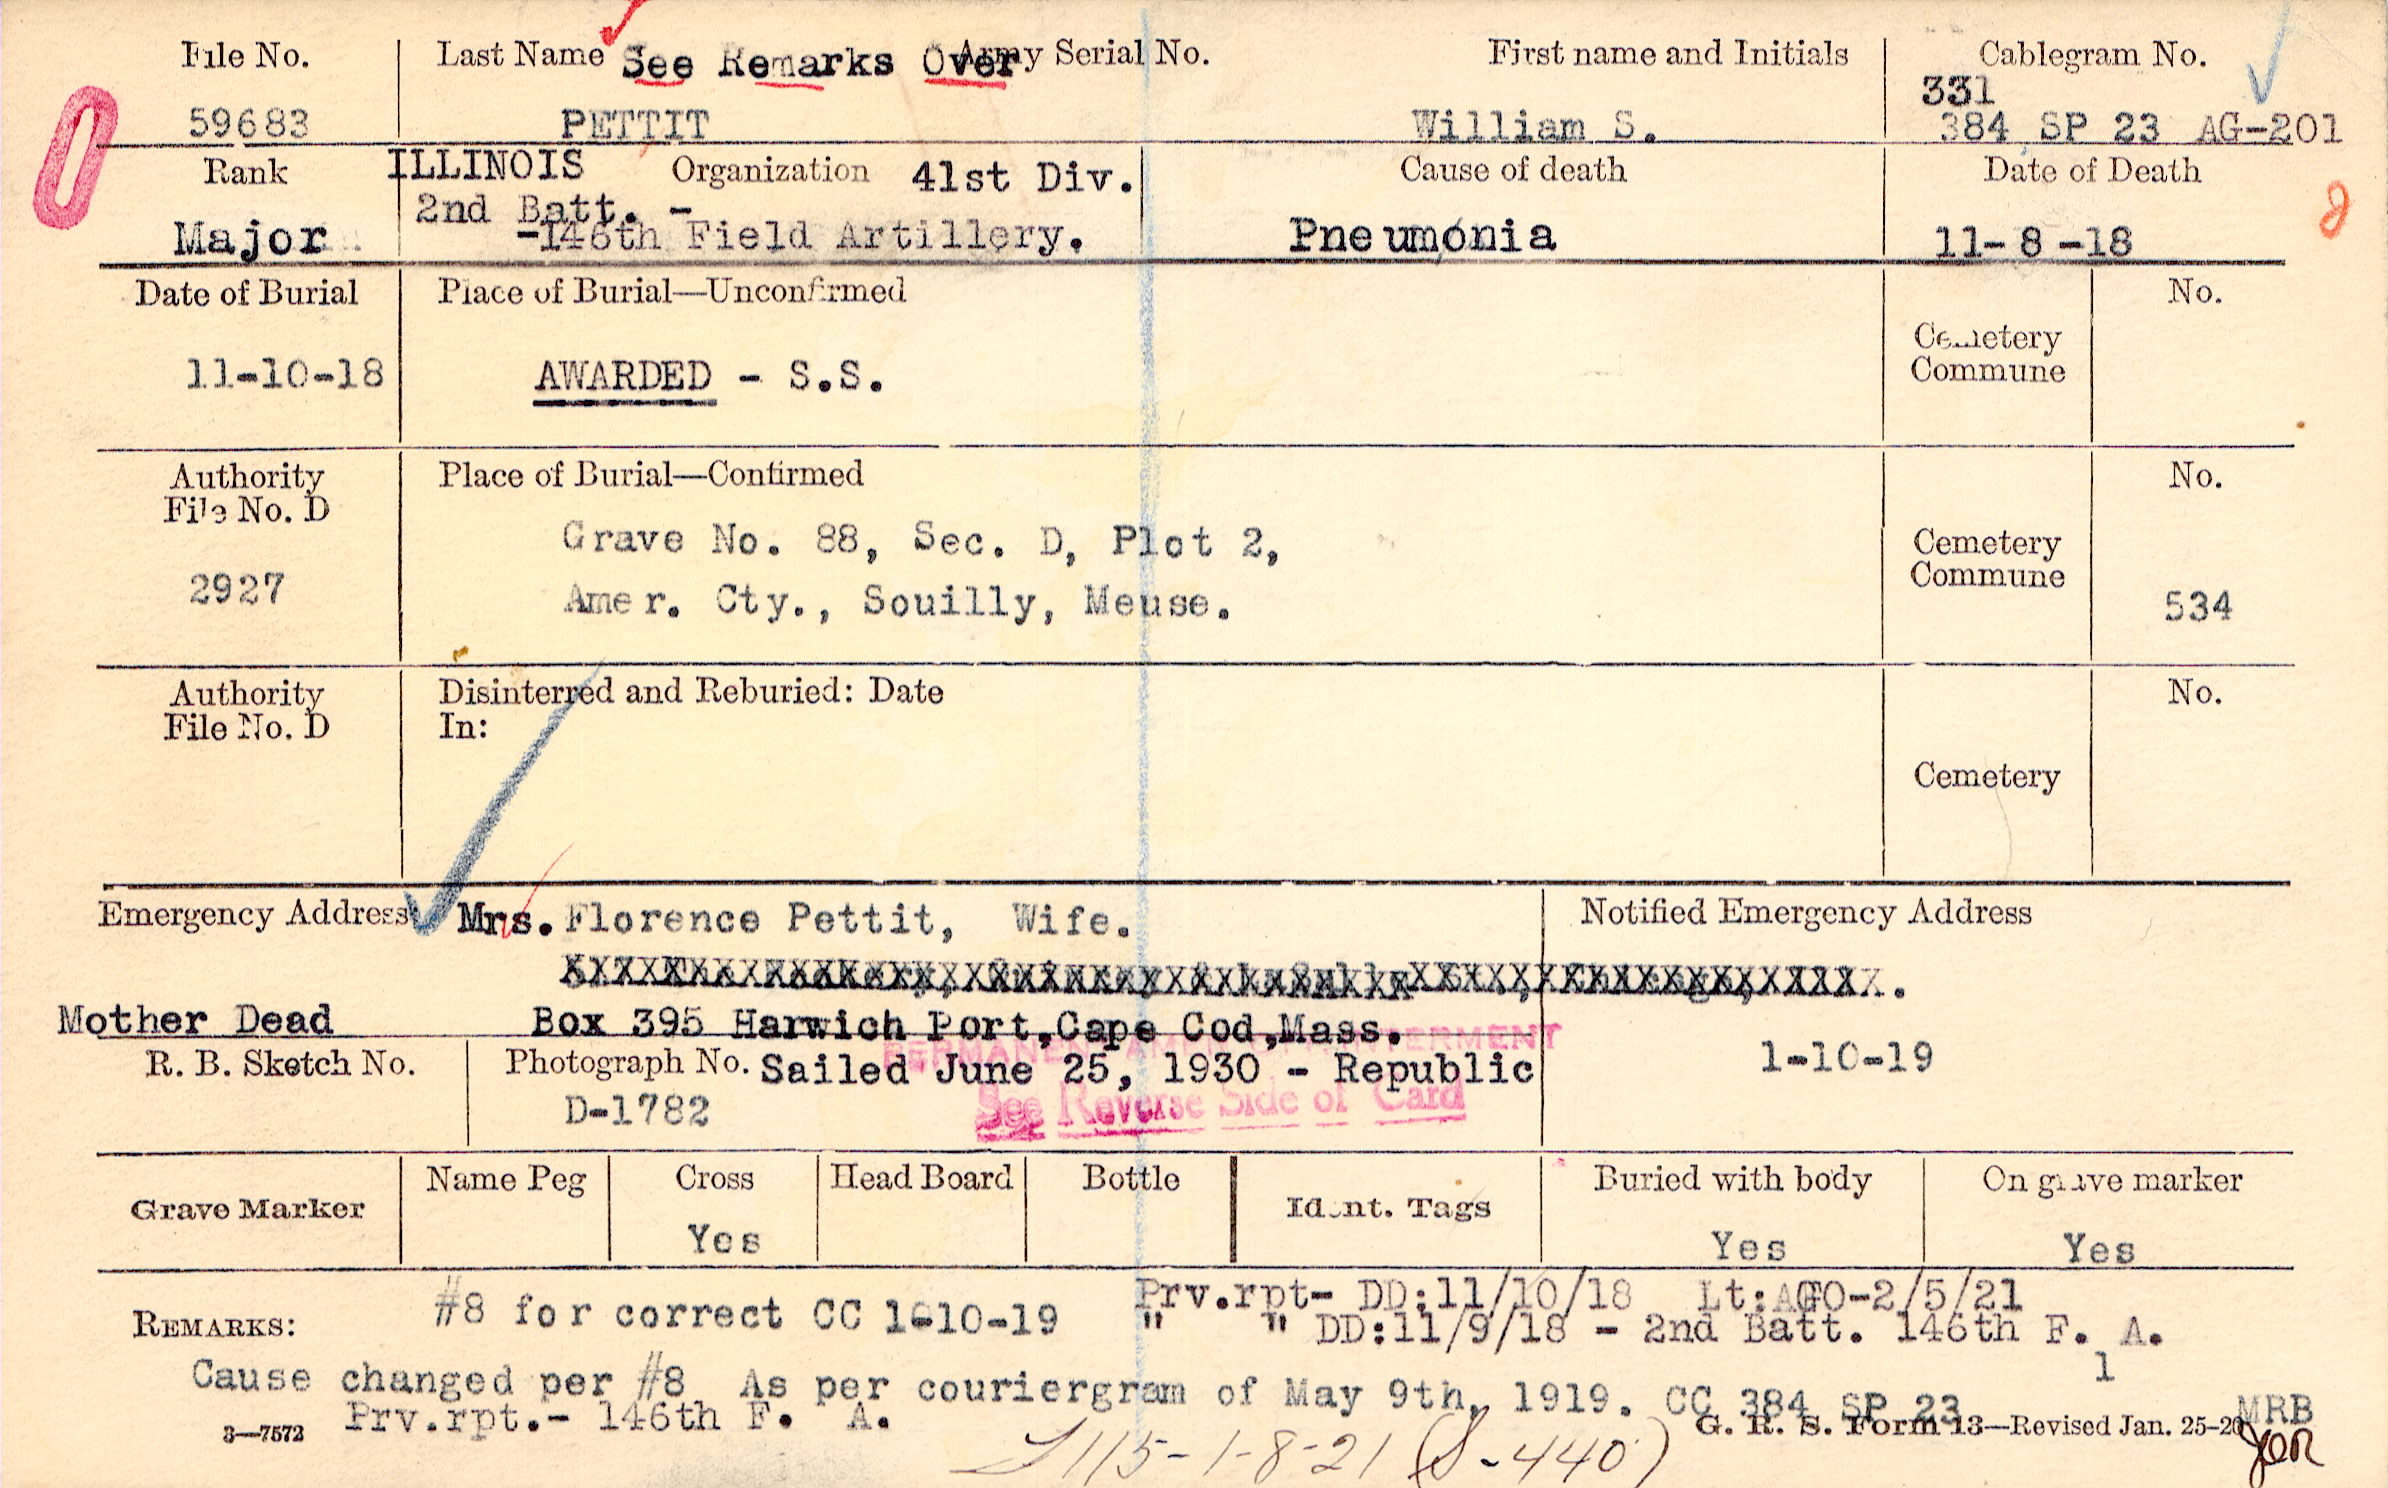 File No.
Last Name
See Remarks Over
Army Serial No.
First name and Initials
Cablegram No.
331
59683
PETTIT
William S.
384 SP 23 AG-201
Rank
ILLINOIS
Organization
41st Div.
Cause of death
Date of Death
2nd Batt. -
Major
-146th Field Artillery.
Pneumonia
11-8-18
Date of Burial
Place of Burial—Unconfirmed
No.
Cemetery
Commune
11-10-18
AWARDED - S.S.
Authority
File No. D
Place of Burial—Confirmed
No.
Grave No. 88, Sec. D, Plot 2,
Cemetery
Commune
2927
Amer. Cty., Souilly, Meuse.
534
Authority
File No. D
Disinterred and Reburied: Date
In:
No.
Cemetery
Emergency Address
Mrs. Florence Pettit, Wife.
Notified Emergency Address
Mother Dead
Box 395 Harwich Port,Cape Cod,Mass.
R. B. Sketch No.
Photograph No.
Sailed June 25, 1930 - Republic
1-10-19
D-1782
See Reverse Side of Card
Grave Marker
Name Peg
Cross
Head Board
Bottle
Ident. Tags
Buried with body
On grave marker
Yes
Yes
Yes
REMARKS:
#8 for correct CC 1-10-19
Prv.rpt- DD:11/10/18 Lt:AGO-2/5/21
" " DD:11/9/18 - 2nd Batt. 146th F. A.
1
Cause changed per #8 As per couriergram of May 9th, 1919. CC 384 SP 23
MRB
3—7572
Prv.rpt.- 146th F. A.
G. R. S. Form 13—Revised Jan. 25-20
115-1-8-21 (S-440)